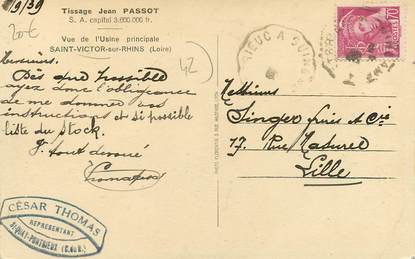 /9/39
Tissage Jean PASSOT
S. A. capital 3.600.000 fr.
20€
Vue de l'Usine principale
SAINT-VICTOR-sur-RHINS (Loire)
42
Messieurs.
Dès que Possible
ayez donc l'obligeance
de me donner vos
instructions et si possible
liste du Stock.
Tt tout dévoué
CÉSAR THOMAS
REPRÉSENTANT
St-QUAY-PORTRIEUX (C.-du-N.)
RIEUC A GUING
70
POSTES
Messieurs
Singer frères et Cie
17, Rue Naturel
Lille